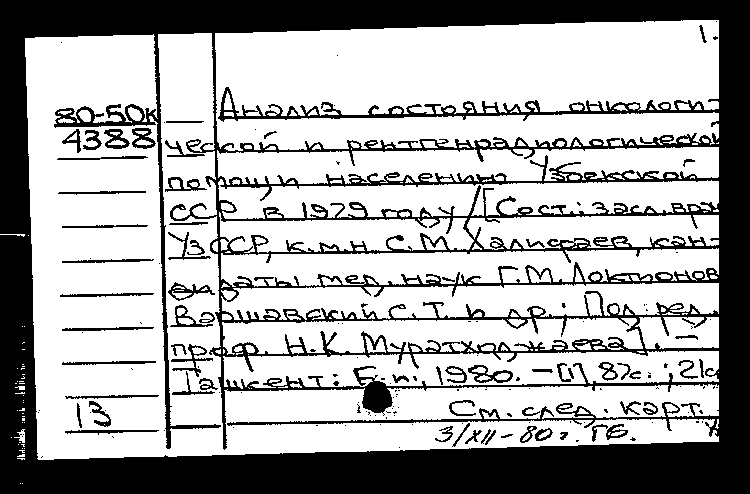 1.
80-50к Анализ состояния онкологи-
4388 ческой и рентгенрадиологической
помощи населению Узбекской
ССР в 1979 году /[Сост.: засл. врач
УзССР, к.м.н. С.М. Халифаев, кан-
дидаты мед. наук Г.М. Локтионов
Варшавский С.Т. и др.; Под ред.
проф. Н.К. Муратходжаева]. -
Ташкент: Б.и., 1980. - [1], 87с.; 21с
13 См. след. карт.
3/XII-80г. ТБ.